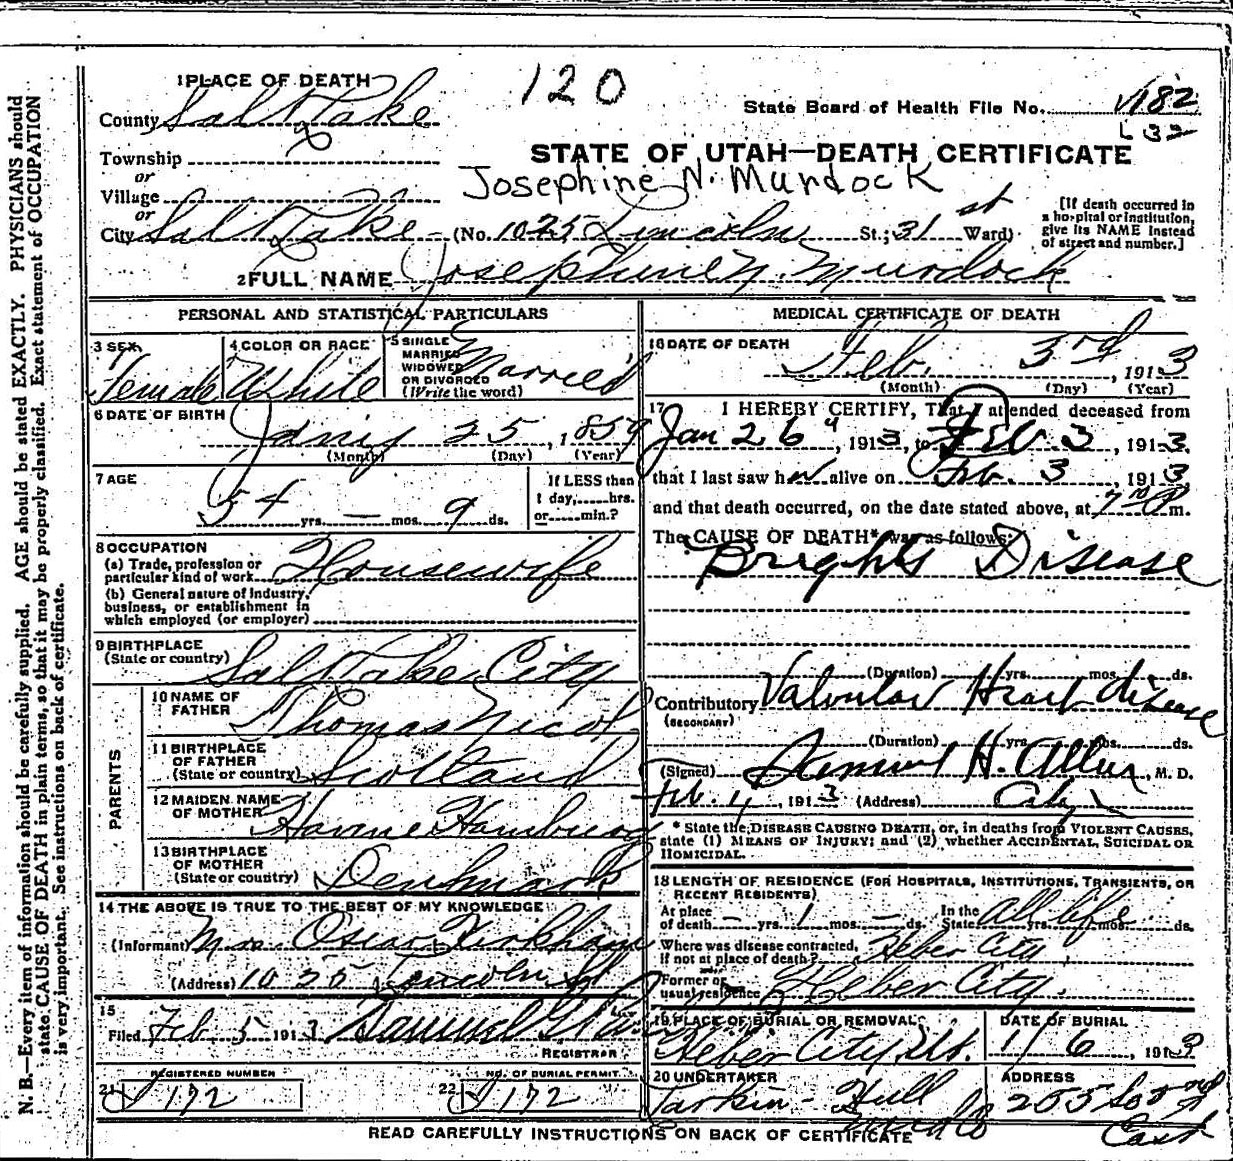 120
1 PLACE OF DEATH
County Salt Lake
State Board of Health File No. 182
L 32
Township
or
Village
or
STATE OF UTAH—DEATH CERTIFICATE
Josephine N. Murdock
City Salt Lake (No. 1025 Lincoln St.; 31st Ward)
[If death occurred in
a hospital or institution,
give its NAME instead
of street and number.]
2 FULL NAME Josephine N. Murdock
PERSONAL AND STATISTICAL PARTICULARS
3 SEX Female
4 COLOR OR RACE White
5 SINGLE
MARRIED
WIDOWED
OR DIVORCED
(Write the word) Married
6 DATE OF BIRTH
25, 1859
(Month) (Day) (Year)
7 AGE
54 yrs. — mos. 9 ds.
If LESS than
1 day,.....hrs.
or.....min.?
8 OCCUPATION
(a) Trade, profession or
particular kind of work Housewife
(b) General nature of industry,
business, or establishment in
which employed (or employer)
9 BIRTHPLACE
(State or country) Salt Lake City
PARENTS
10 NAME OF
FATHER Thomas Nicol
11 BIRTHPLACE
OF FATHER
(State or country) Scotland
12 MAIDEN NAME
OF MOTHER
13 BIRTHPLACE
OF MOTHER
(State or country) Denmark
14 THE ABOVE IS TRUE TO THE BEST OF MY KNOWLEDGE
(Informant) Mrs. Oscar Kirkham
(Address) 1025 Lincoln St
15
Filed Feb 5 1913 Samuel G.
REGISTRAR
REGISTERED NUMBER
21 172
NO. OF BURIAL PERMIT
22 172
MEDICAL CERTIFICATE OF DEATH
16 DATE OF DEATH
Feb. 3rd, 1913
(Month) (Day) (Year)
17 I HEREBY CERTIFY, That I attended deceased from
Jan 26, 1913, to Feb 3, 1913
that I last saw her alive on Feb. 3, 1913,
and that death occurred, on the date stated above, at 7 P m.
The CAUSE OF DEATH* was as follows:
Brights Disease
(Duration) yrs. mos. ds.
Contributory Valvular Heart disease
(SECONDARY)
(Duration) yrs. mos. ds.
(Signed) Samuel H. Allen, M. D.
Feb. 4, 1913 (Address) City
* State the DISEASE CAUSING DEATH, or, in deaths from VIOLENT CAUSES,
state (1) MEANS OF INJURY; and (2) whether ACCIDENTAL, SUICIDAL OR
HOMICIDAL.
18 LENGTH OF RESIDENCE (FOR HOSPITALS, INSTITUTIONS, TRANSIENTS, OR
RECENT RESIDENTS)
At place
of death — yrs. 1 mos. — ds. In the
State All life yrs. mos. ds.
Where was disease contracted,
If not at place of death? Heber City
Former or
usual residence Heber City.
19 PLACE OF BURIAL OR REMOVAL
Heber City, Ut.
DATE OF BURIAL
1/6, 1913
20 UNDERTAKER
Larkin - Hull
ADDRESS
255 So 2nd
East
READ CAREFULLY INSTRUCTIONS ON BACK OF CERTIFICATE
N. B.—Every item of information should be carefully supplied. AGE should be stated EXACTLY. PHYSICIANS should
state CAUSE OF DEATH in plain terms, so that it may be properly classified. Exact statement of OCCUPATION
is very important. See instructions on back of certificate.